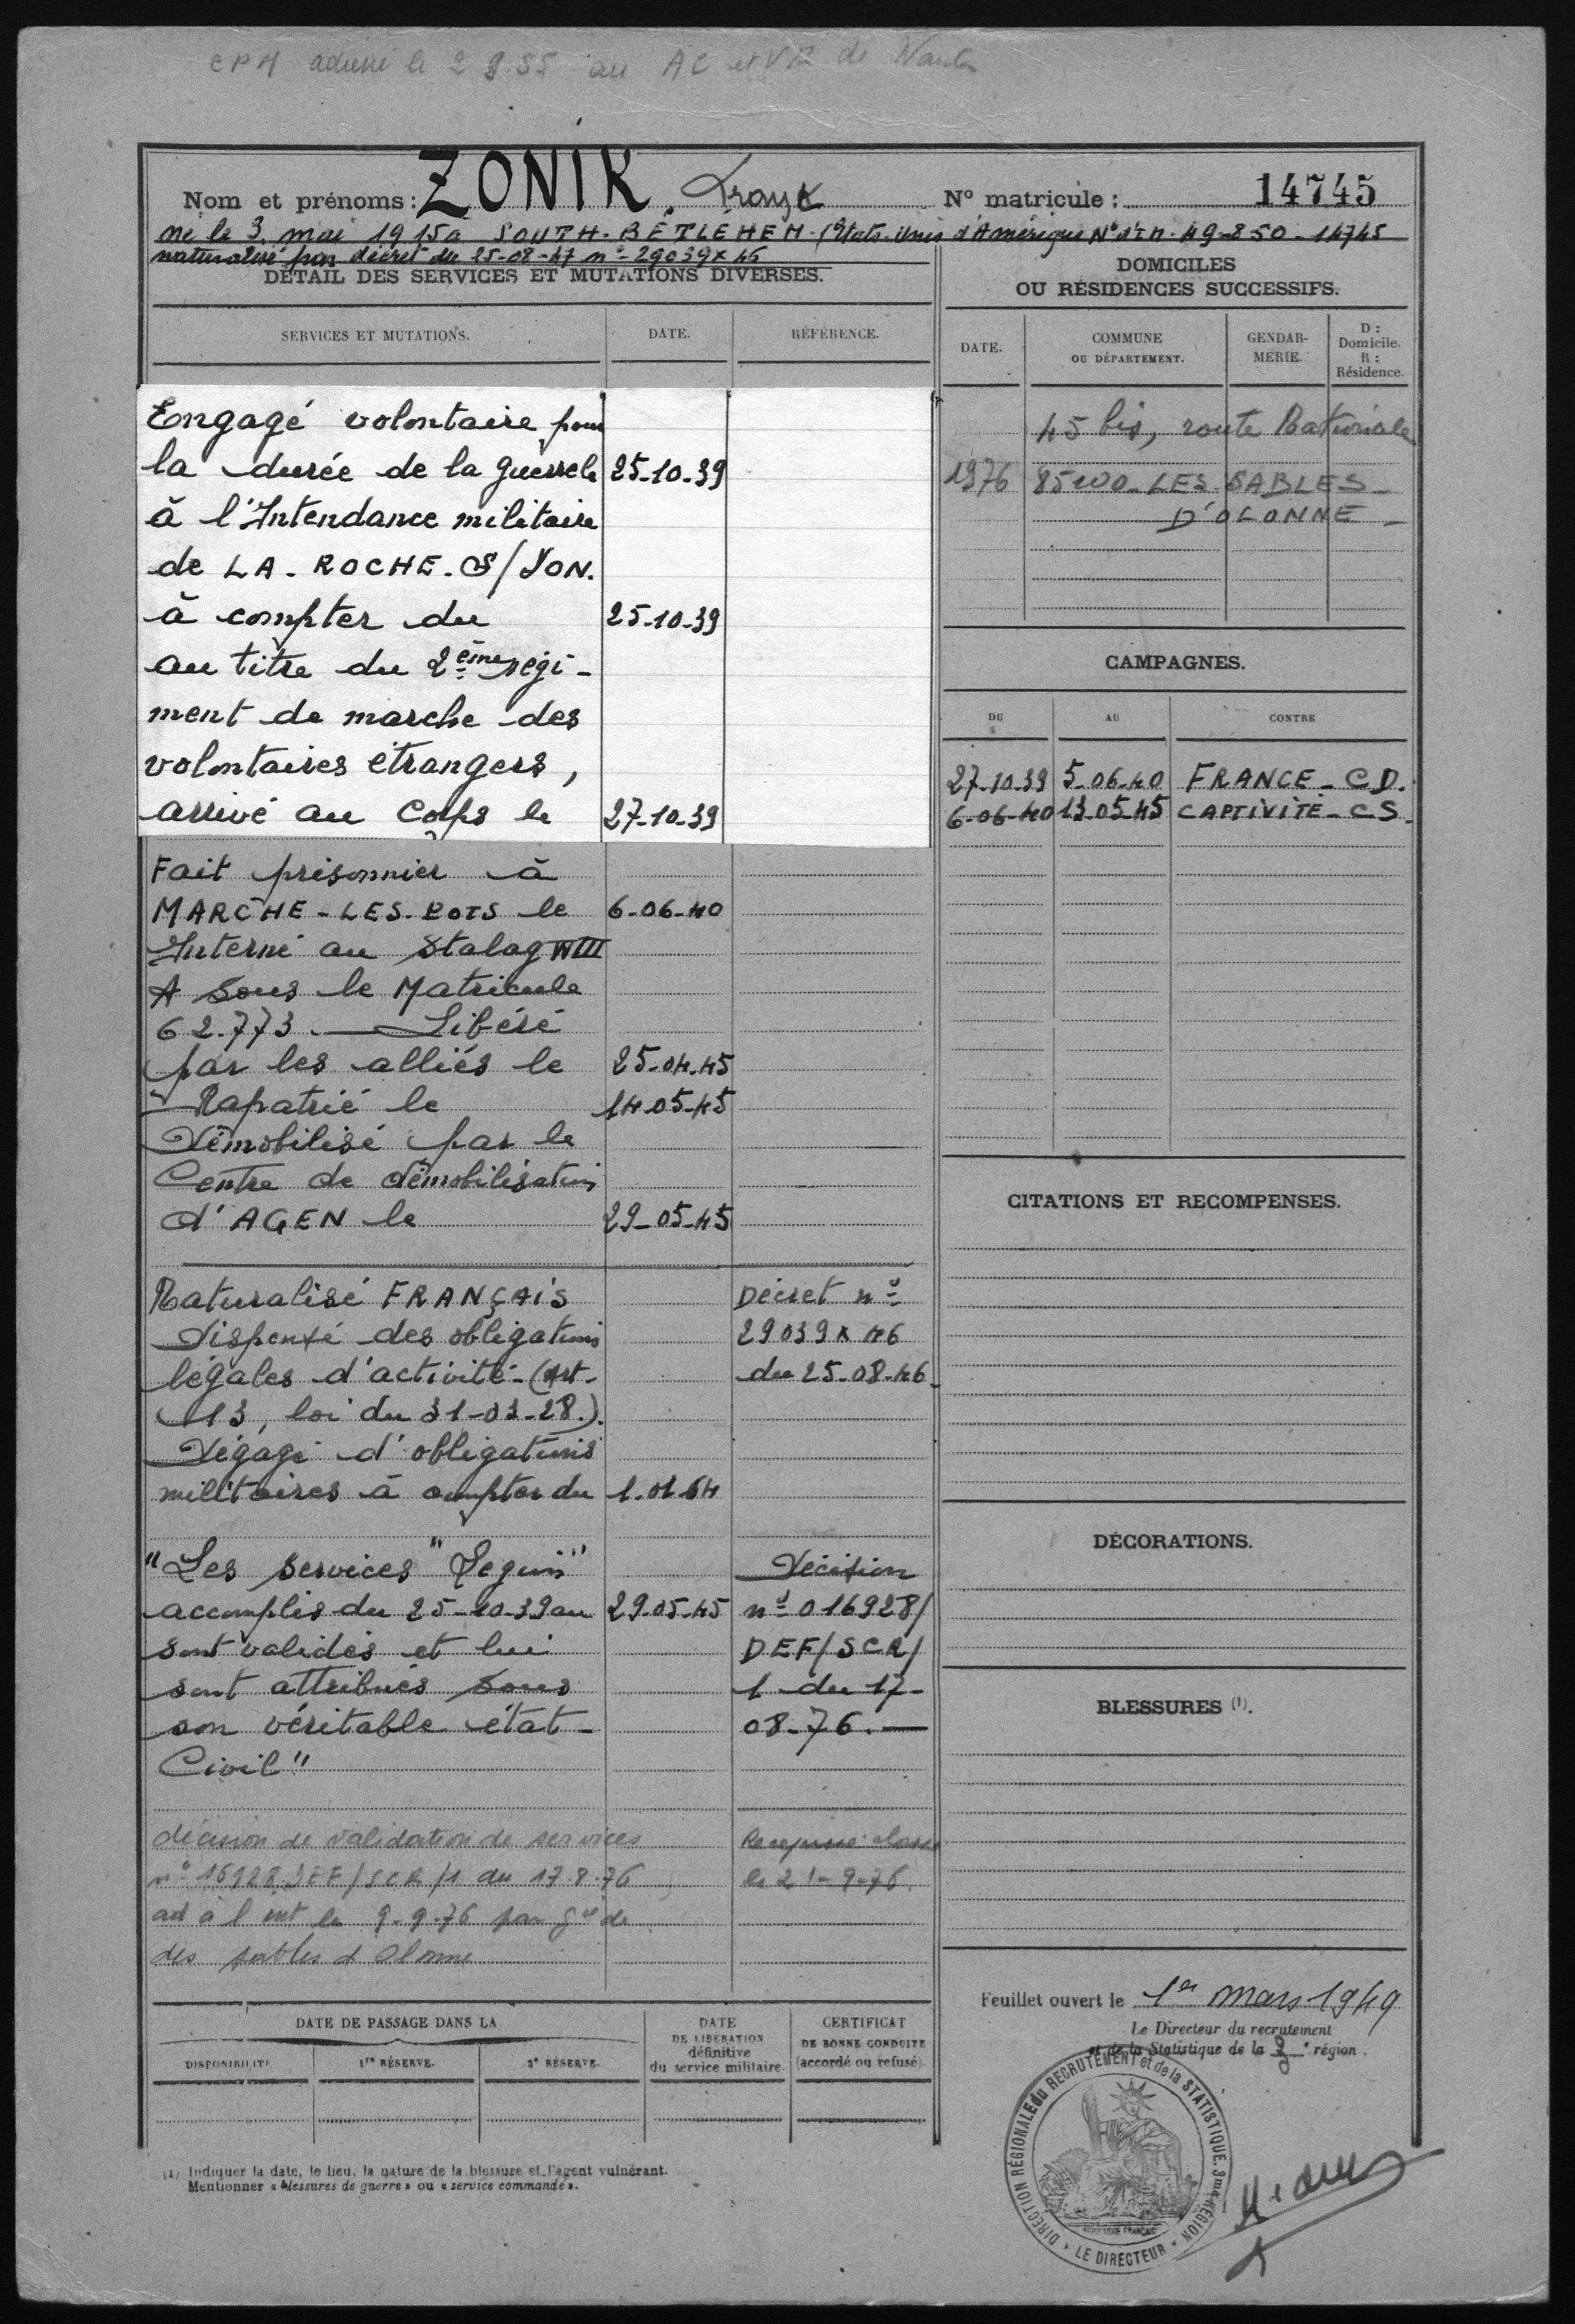 CPM adressé le 2 9.55 au AC et VG de Nantes
Nom et prénoms : ZONIK, Frank
N° matricule : 14745
né le 3 mai 1915 à SOUTH-BÉTLÉHEM (Etats-Unis d'Amérique N° 49-850-14745
naturalisé par décret du 25-08-47 n° 29039 x 46
DÉTAIL DES SERVICES ET MUTATIONS DIVERSES.
SERVICES ET MUTATIONS.
DATE.
RÉFÉRENCE.
Engagé volontaire pour
la durée de la guerre le 25-10-39
à l'Intendance militaire
de LA. ROCHE. S/YON.
à compter du 25-10-39
au titre du 2ème régi-
ment de marche des
volontaires étrangers,
arrivé au Corps le 27-10-39
Fait prisonnier à
MARCHE-LES-POTS le 6-06-40
Interné au Stalag VIII
A sous le Matricule
62.773. — Libéré
par les alliés le 25-04-45
Rapatrié le 14-05-45
Démobilisé par le
Centre de démobilisation
d'AGEN le 29-05-45
Naturalisé FRANÇAIS Décret n°
dispensé des obligations 29039 x 46
légales d'activité - (Art. du 25-08-46
13, loi du 31-03-28.).
Dégagé d'obligations
militaires à compter du 1.01.64
"Les services "Seguin" Décision
accomplis du 25-10-39 au 29.05-45 n° 016928/
sont validés et lui DEF/SCR/
sont attribués sous 1 du 17-
son véritable état- 08-76. —
Civil"
décision de validation de services Récépissé classé
n° 16928 DEF/SCR/1 du 17.8.76 le 21-9-76.
ad à l'int le 9-9-76 par gie de
des sables d Olonne
DATE DE PASSAGE DANS LA
DISPONIBILITÉ
1re RÉSERVE.
2e RÉSERVE.
DATE
DE LIBÉRATION
définitive
du service militaire.
CERTIFICAT
DE BONNE CONDUITE
(accordé ou refusé).
(1) Indiquer la date, le lieu, la nature de la blessure et l'agent vulnérant.
Mentionner « blessures de guerre » ou « service commandé ».
DOMICILES
OU RÉSIDENCES SUCCESSIFS.
DATE.
COMMUNE
OU DÉPARTEMENT.
GENDAR-
MERIE.
D :
Domicile.
R :
Résidence.
45 bis, route Nationale
1976 85100 - LES SABLES
D'OLONNE -
CAMPAGNES.
DU
AU
CONTRE
27-10-39 5-06-40 FRANCE - C D.
6-06-40 13-05-45 CAPTIVITÉ - C S.
CITATIONS ET RECOMPENSES.
DÉCORATIONS.
BLESSURES (1).
Feuillet ouvert le 1er mars 1949
Le Directeur du recrutement
et de la Statistique de la 3e région.
DIRECTION RÉGIONALE du RECRUTEMENT et de la STATISTIQUE. 3me RÉGION
RÉPUBLIQUE FRANÇAISE
* LE DIRECTEUR *